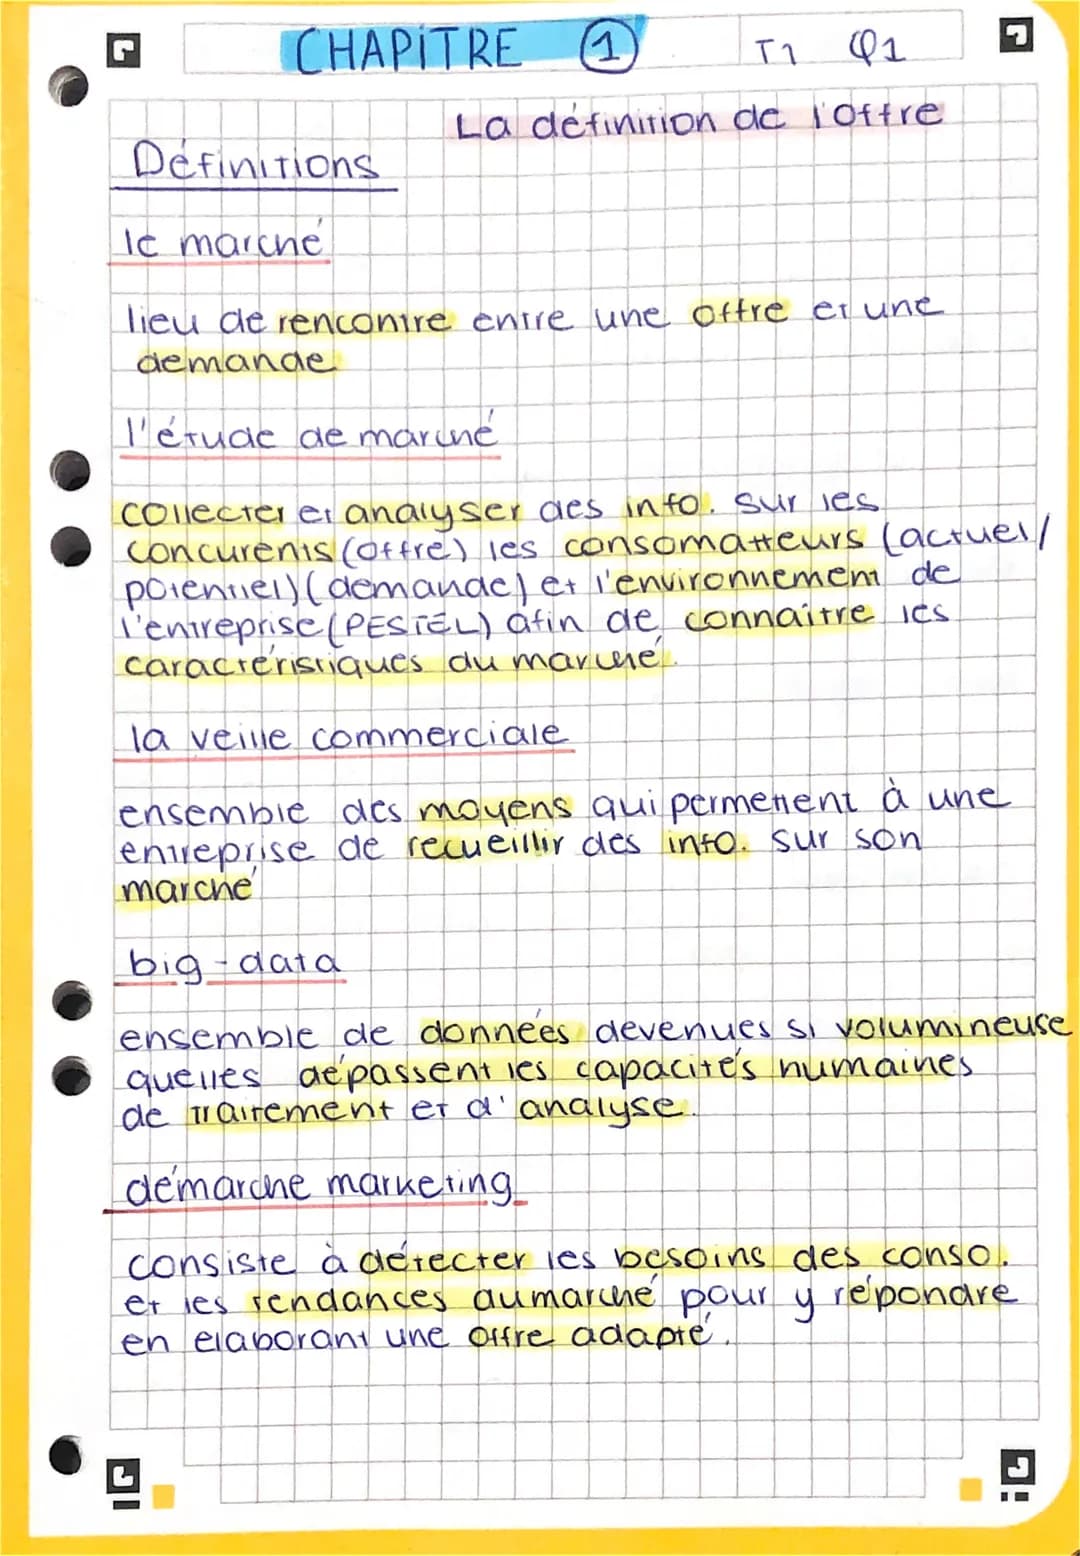 CHAPITRE 1 T1 Q1
La définition de l'offre
Définitions
le marché
lieu de rencontre entre une offre et une
demande
l'étude de marché
collecter et analyser des info. sur les
concurents (offre) les consomatteurs (actuel/
potentiel) (demande) et l'environnement de
l'entreprise (PESTEL) afin de connaître les
caractéristiques du marché.
la veille commerciale
ensemble des moyens qui permettent à une
entreprise de recueillir des info. sur son
marché
big-data
ensemble de données devenues si volumineuse
quelles dépassent les capacités humaines
de traitement et d'analyse.
démarche marketing
consiste à détecter les besoins des conso.
et les tendances du marché pour y répondre
en élaborant une offre adapté.